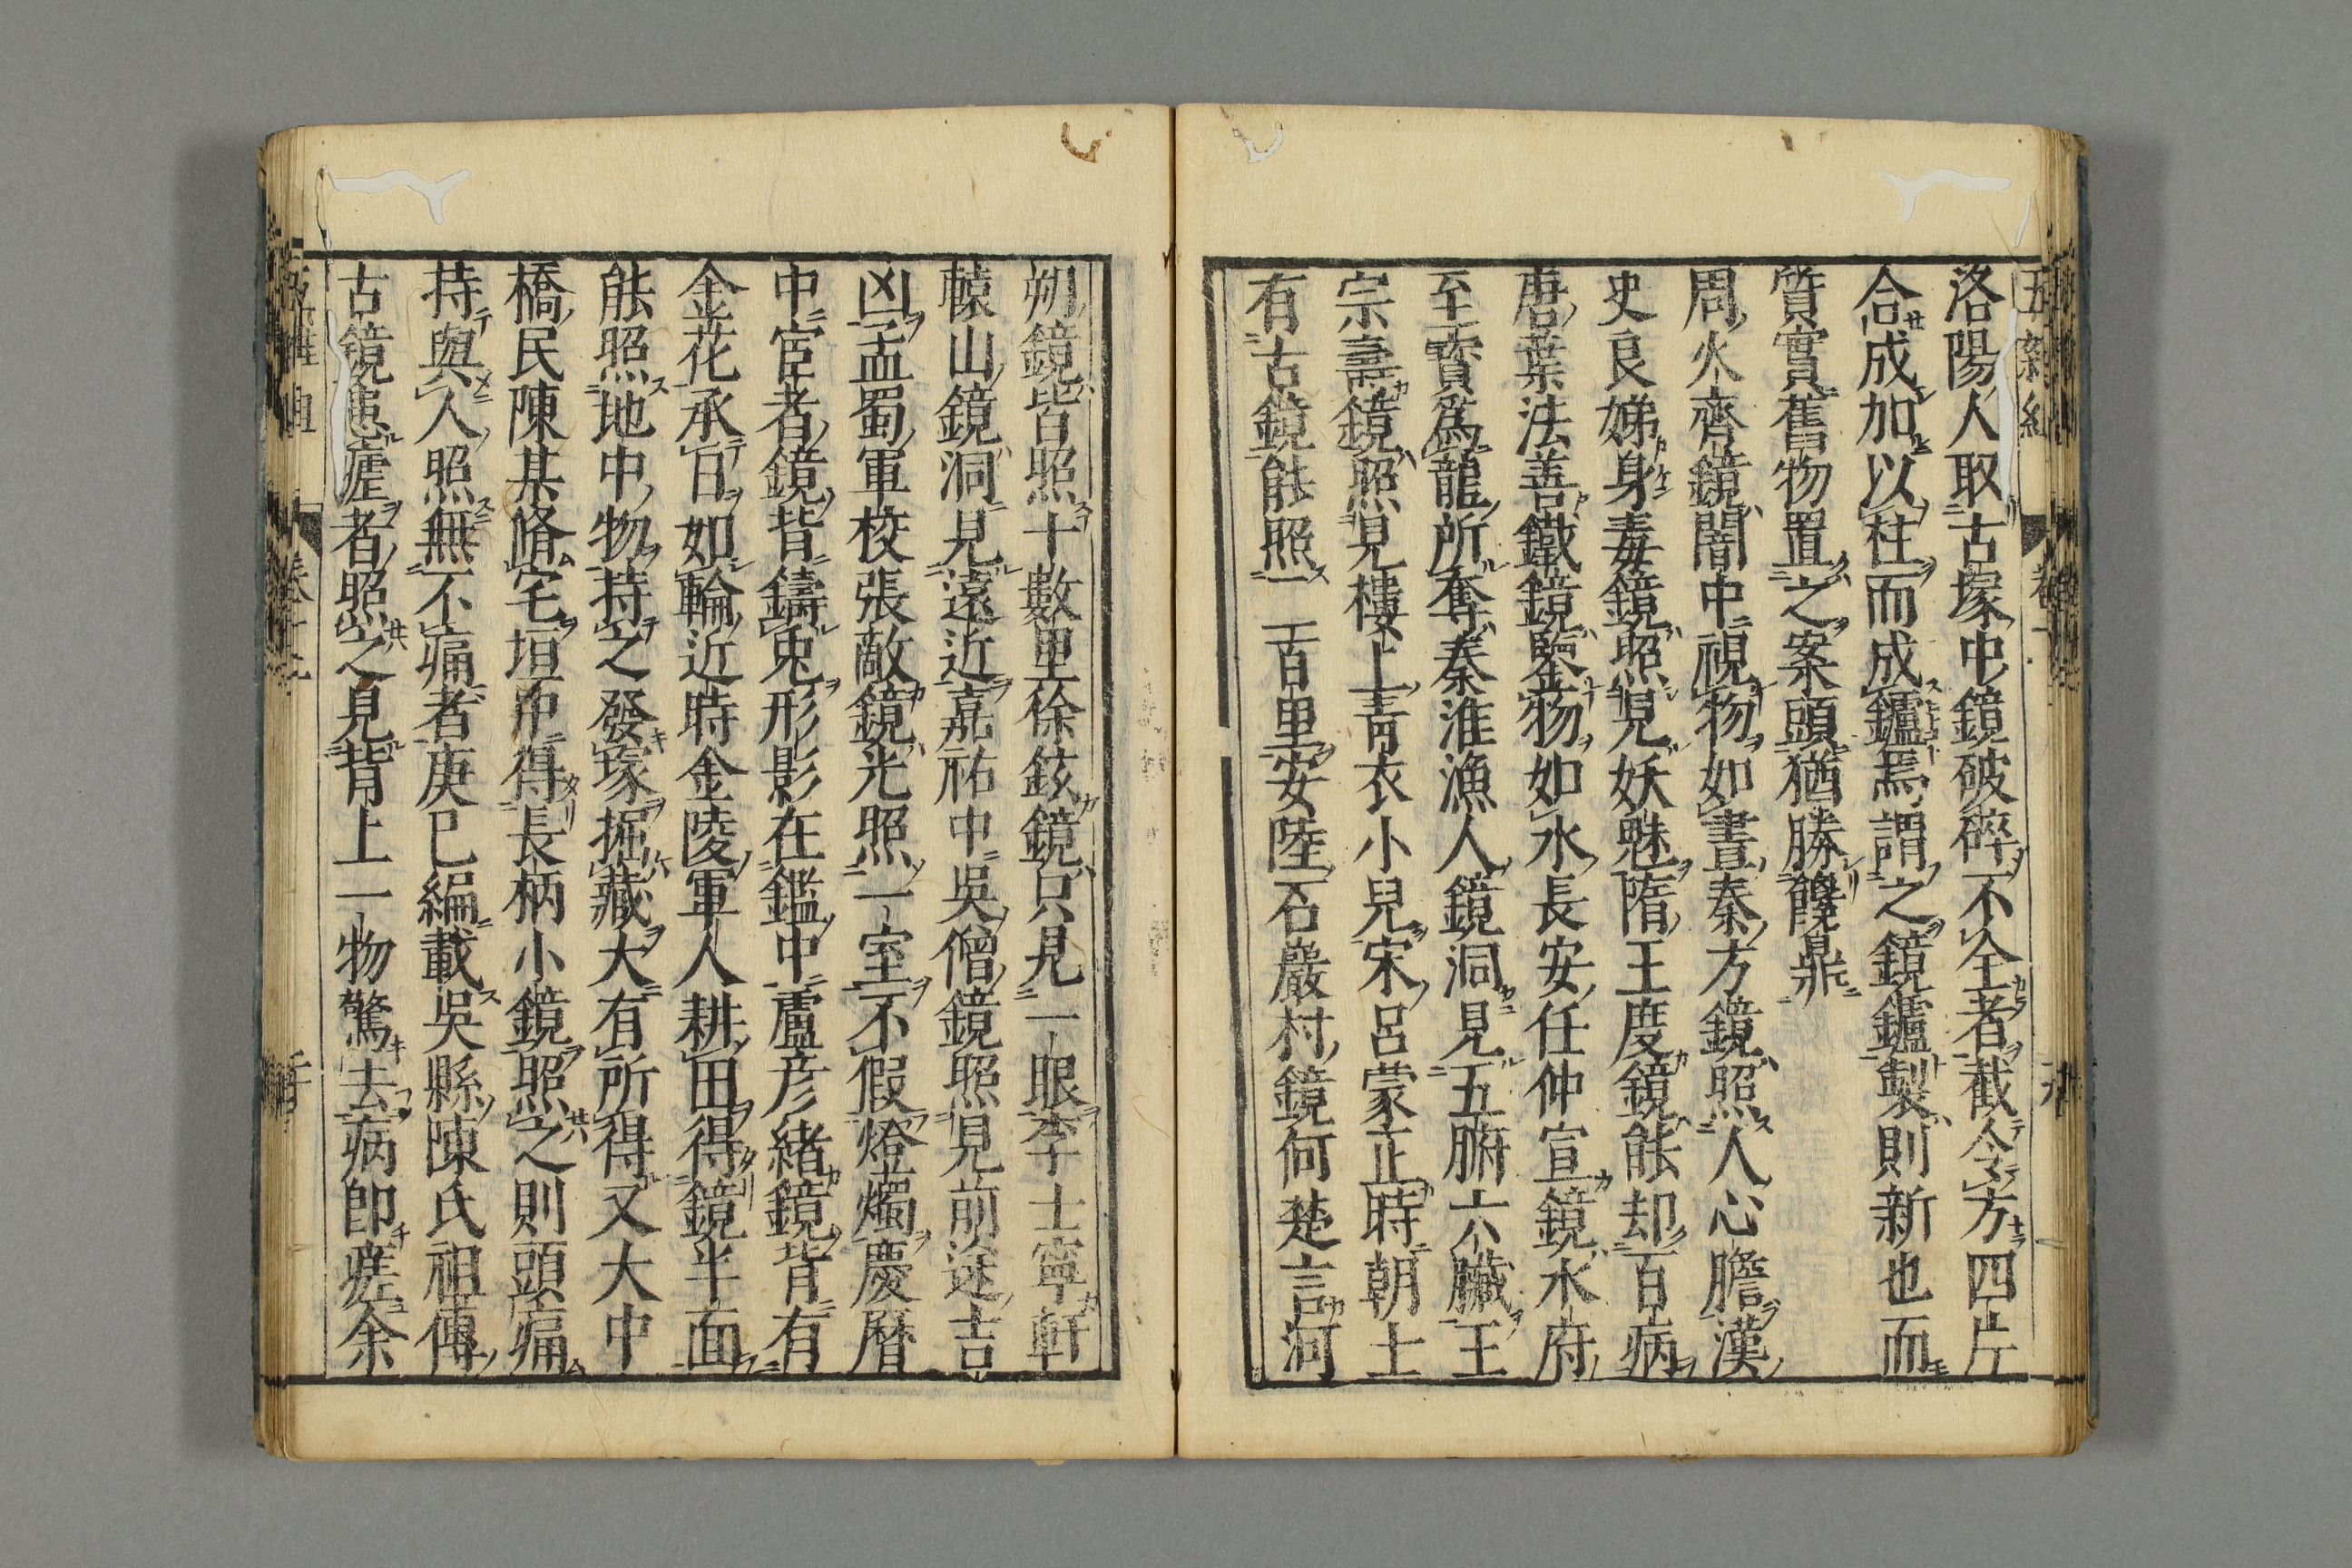 洛陽人取古塚中鏡破碎不全者截令方四片
合成加以柱而成鑪焉謂之鏡鑪製則新也而
質實舊物置之案頭猶勝饞鼎
周火齊鏡闇中視物如晝秦方鏡照人心膽漢
史良娣身毒鏡照見妖魅隋王度鏡能却百病
唐葉法善鐵鏡鑒物如水長安任仲宣鏡水府
至寶爲龍所奪秦淮漁人鏡洞見五腑六臟王
宗壽鏡照見樓上青衣小兒宋呂蒙正時朝士
有古鏡能照二百里安陸石巖村鏡何楚言河
朔鏡皆照十數里徐鉉鏡只見一眼李士寧軒
轅山鏡洞見遠近嘉祐中吳僧鏡照見前途吉
凶孟蜀軍校張敵鏡光照一室不假燈燭慶曆
中宦者鏡背鑄兎形影在鑑中盧彦緒鏡背有
金花承日如輪近時金陵軍人耕田得鏡半面
能照地中物持之發塚掘藏大有所得又大中
橋民陳某脩宅垣中得長柄小鏡照之則頭痛
持與人照無不痛者庚巳編載吳縣陳氏祖傳
古鏡患瘧者照之見背上一物驚去病卽瘥余